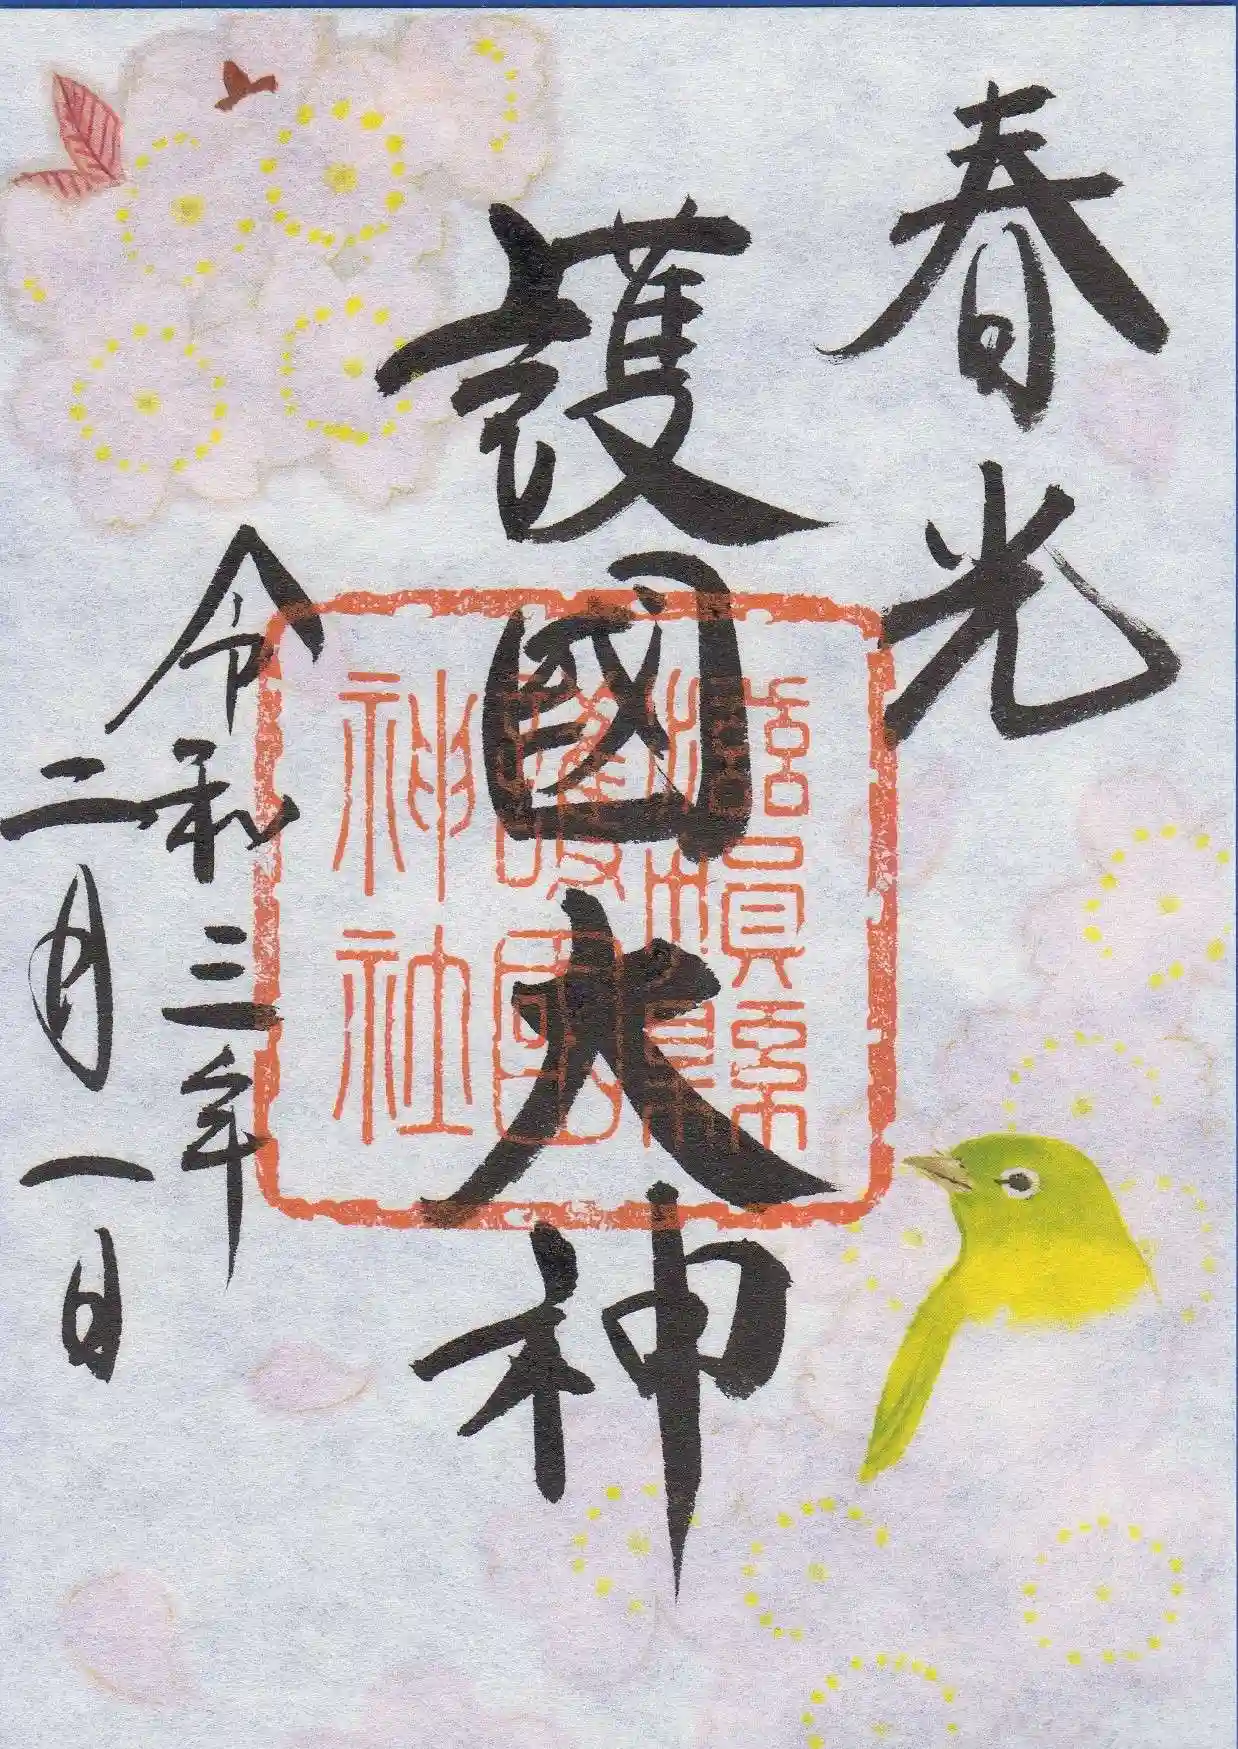 春光
護國大神
令和三年
二月一日
護國
神社